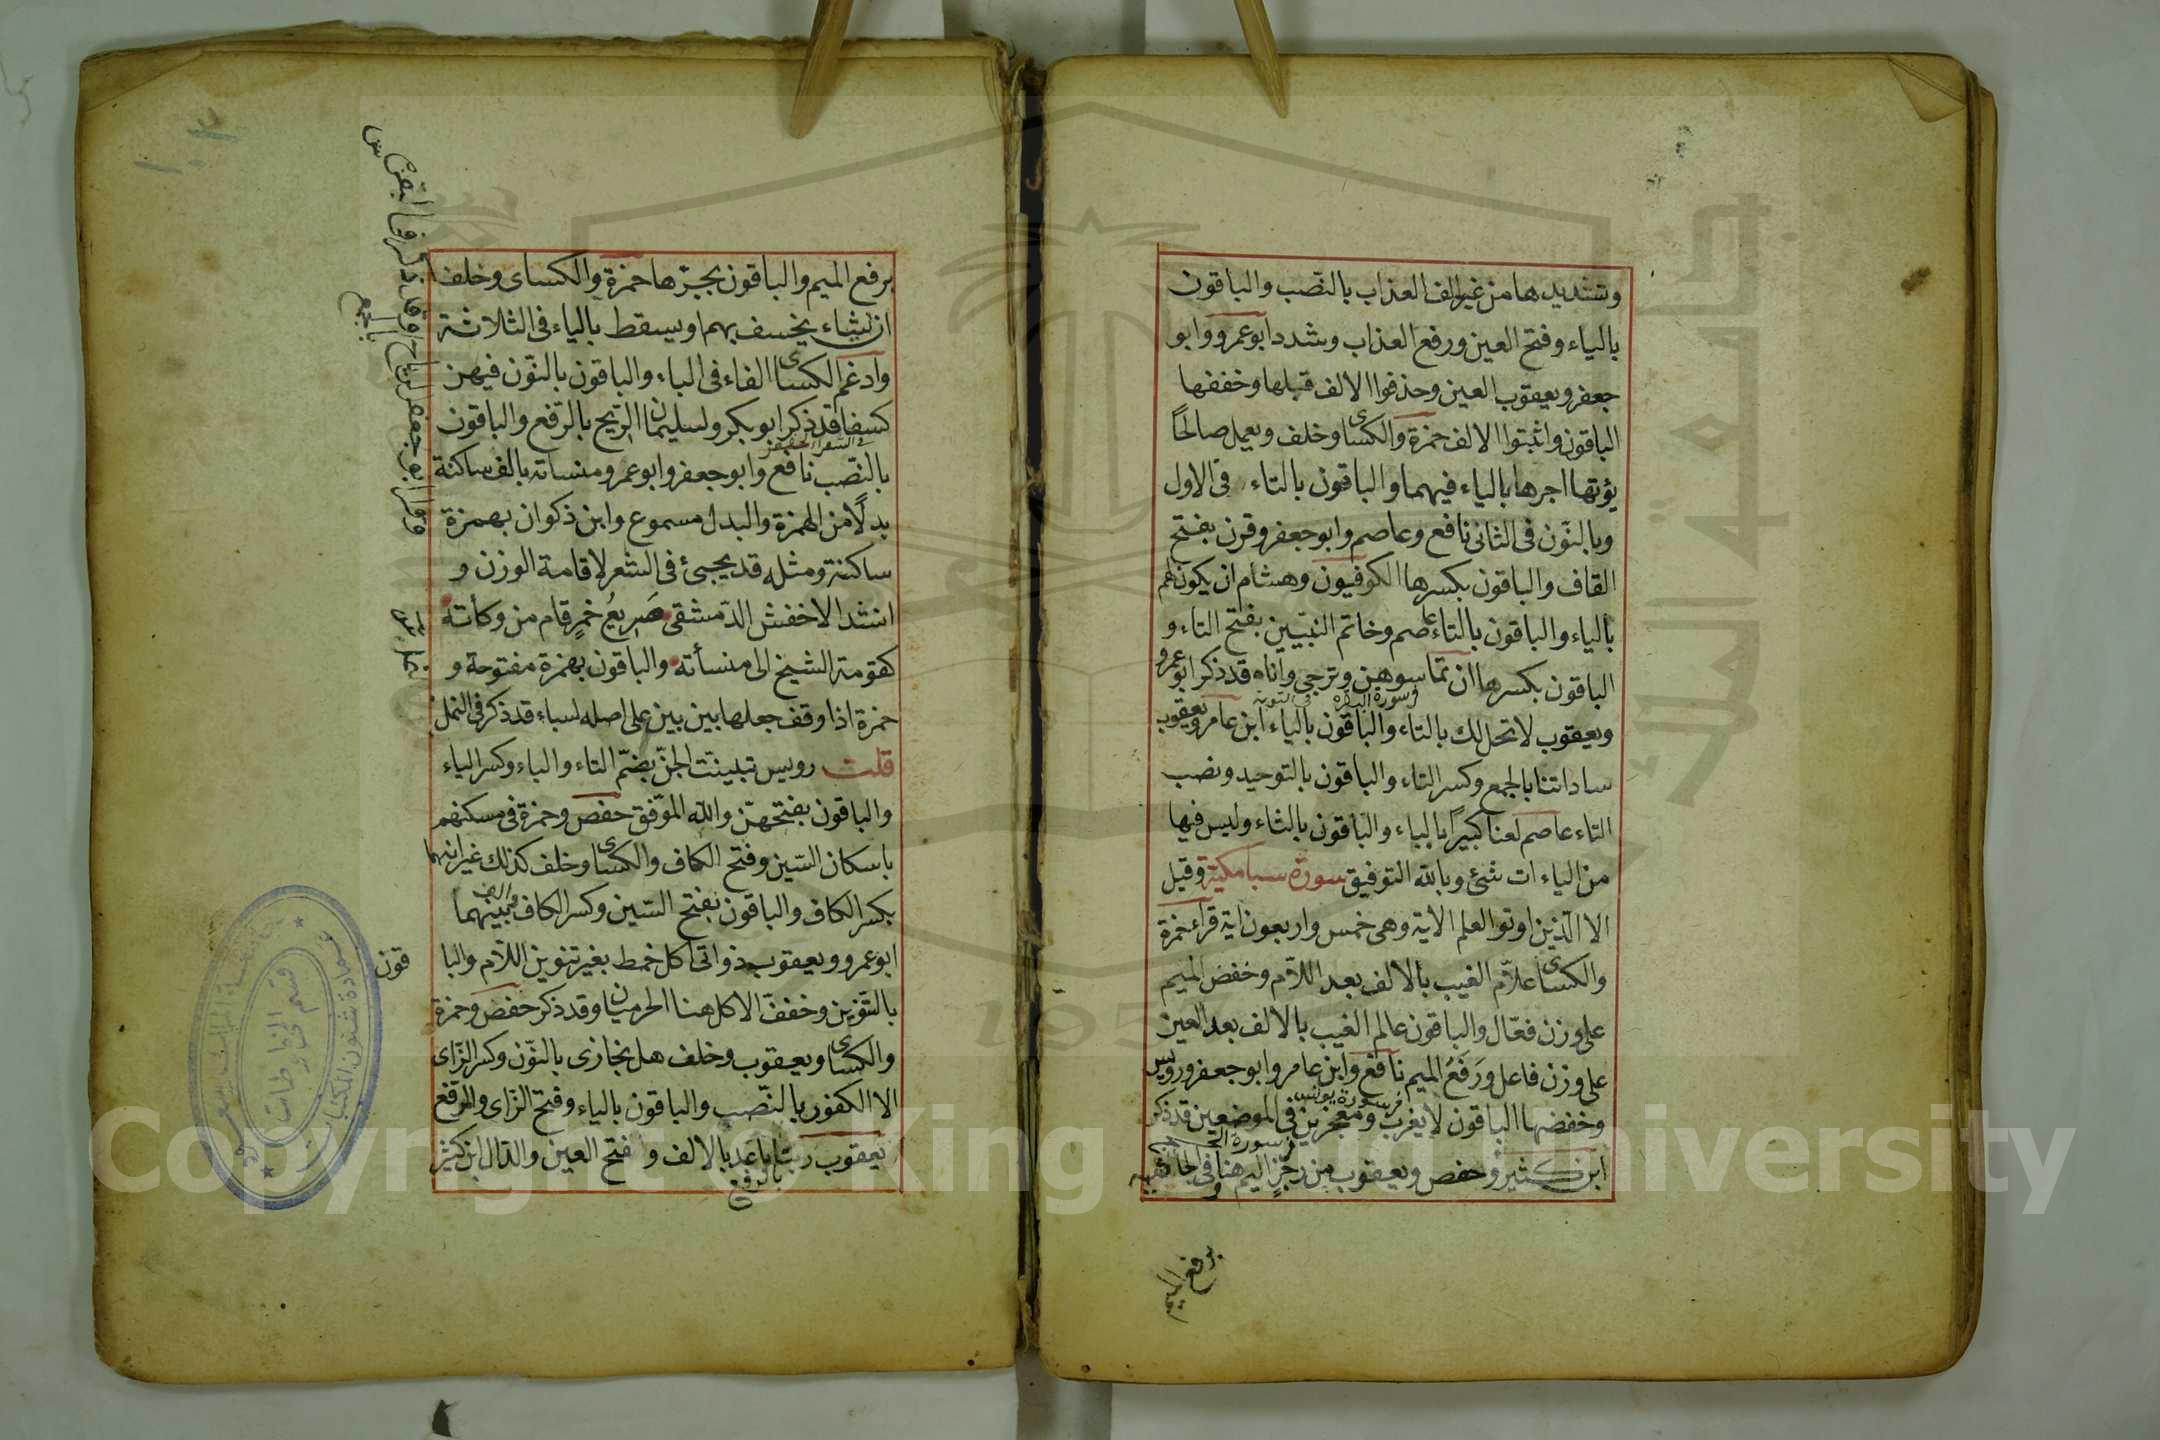 وتشديدها من غير الف العذاب بالنصب والباقون
بالياء وفتح العين ورفع العذاب وشدد ابو عمرو وابو
جعفر ويعقوب العين وحذفوا الالف قبلها وخففها
الباقون واثبتوا الالف حمزة والكساى وخلف ويعمل صالحًا
يؤتها اجرها بالياء فيهما والباقون بالتاء فى الاول
وبالنون فى الثانى نافع وعاصم وابو جعفر وقرن بفتح
القاف والباقون بكسرها الكوفيون وهشام ان يكون لهم
بالياء والباقون بالتاء عاصم وخاتم النبيّين بفتح التاء و
الباقون بكسرها ان تماسوهن وترجى واناه قد ذكر ابو عمرو
فى سورة البقرة فى التوبة
ويعقوب لا تحل لك بالتاء والباقون بالياء ابن عامر ويعقوب
ساداتنا بالجمع وكسر التاء والباقون بالتوحيد ونصب
التاء عاصم لعنا كبيرًا بالباء والباقون بالثاء وليس فيها
من الياءات شئ وبالله التوفيق سورة سبا مكية وقيل
الا الذين اوتو العلم الاية وهى خمس واربعون اية قراء حمزة
والكساى علّام الغيب بالالف بعد اللّام وخفض الميم
على وزن فعّال والباقون عالم الغيب بالالف بعد العين
على وزن فاعل ورَفَعُ الميم نافع وابن عامر وابو جعفر ورويس
وخفضها الباقون لا يعزب ومعجزين فى الموضعين قد ذكر
فى سورة يونس
فى سورة الحج
ابن كثير وحفص ويعقوب من رجزٍ اليم هنا وفى الجاثيه
برفع الميم
برفع الميم والباقون بجرّها حمزة والكساى وخلف
ان يشاء يخسف بهم او يسقط بالياء فى الثلاثة
وادغم الكساى الفاء فى الباء والباقون بالنّون فيهن
كسفا قد ذكر ابو بكر ولسليمان الرّيح بالرّفع والباقون
بالنّصب نافع وابو جعفر وابو عمرو منساته بالف ساكنة
بدلًا من الهمزة والبدل مسموع وابن ذكوان بهمزة
ساكنة ومثله قد يجيئ فى الشعر لاقامة الوزن و
انشد الاخفش الدّمشقى صَرِيعُ خمرٍ قام من وكأته
كقومة الشيخ الى منسأته والباقون بهمزة مفتوحة و
حمزة اذا وقف جعلها بين بين على اصله لسباء قد ذكر فى النمل
قلت رويس تبينت الجنّ بضمّ التاء والباء وكسر الياء
والباقون بفتحهنّ والله الموّفق حفص وحمزة فى مسكنهم
باسكان السّين وفتح الكاف والكساى وخلف كذلك غير انهما
بكسر الكاف والباقون بفتح السّين وكسر الكاف والف بينهما
ابو عمرو ويعقوب ذواتى اكل خمط بغير تنوين اللّام والبا
قون
بالتّنوين وخففّ الاكل هنا الحرميان وقد ذكر حفص وحمزة
والكساى ويعقوب وخلف هل نجازى بالنّون وكسر الزّاى
الا الكفور بالنّصب والباقون بالياء وفتح الزّاى والرّفع
يعقوب ربنا باعَد بالالف وفتح العين والدّال ابن كثير
بالرفع
قسم المخطوطات
عمادة شئون المكتبات
1957
Copyright © King Saud University